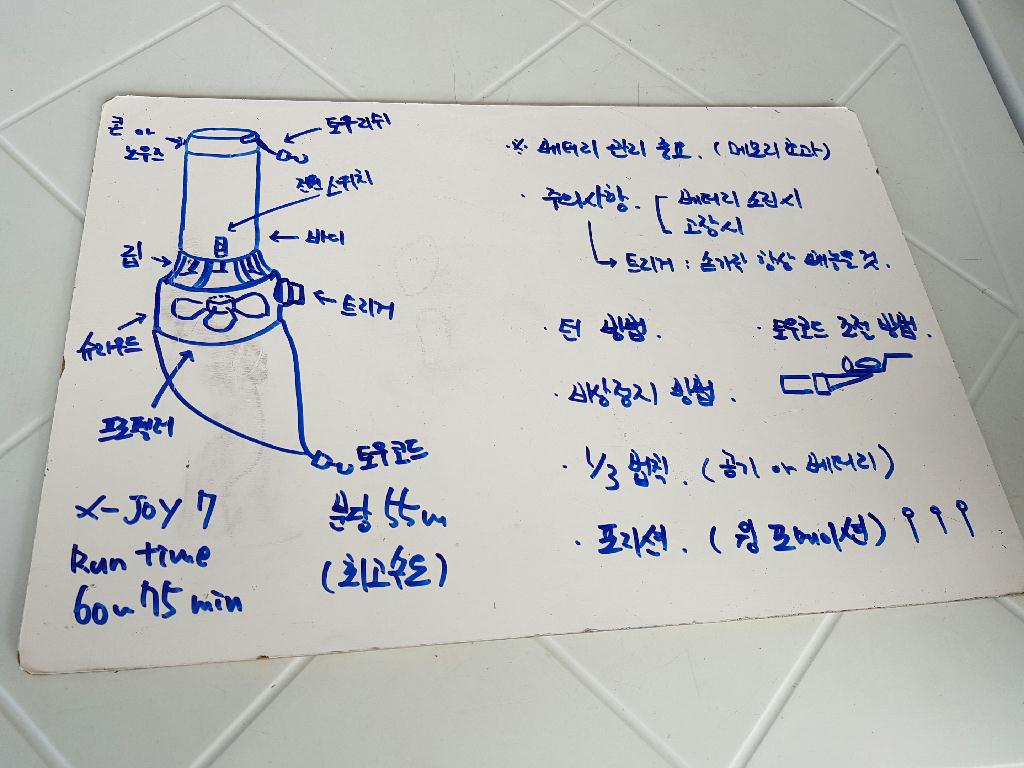 콘 or
노우즈
토우리쉬
전원스위치
바디
립
트리거
슈라우드
프로펠러
토우코드
X-JOY 7
Run time
60~75 min
분당 55m
(최고속도)
※ 배터리 관리 중요. (메모리 효과)
· 주의사항. 배터리 소진시
고장시
트리거 : 손가락 항상 떼놓을 것.
· 턴 방법.
· 토우코드 조절 방법.
· 비상정지 방법.
· 1/3 법칙. (공기 or 배터리)
· 포지션. (윙 포메이션)